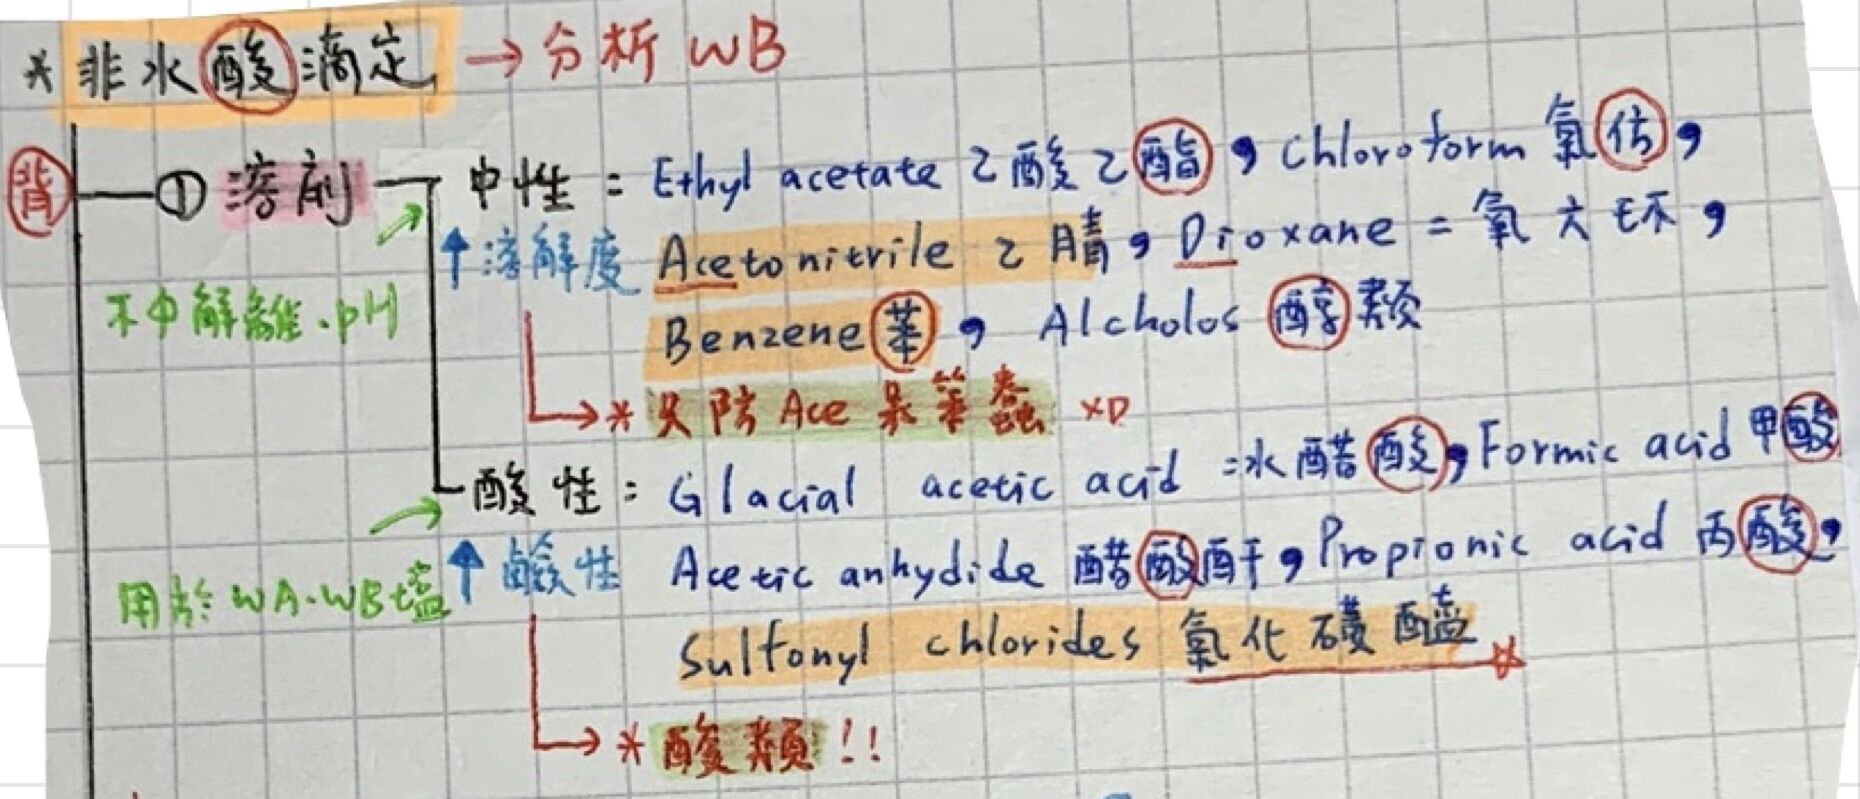 * 非水酸滴定 → 分析 WB
背 ① 溶剤 中性: Ethyl acetate 乙酸乙酯, Chloroform 氯仿,
↑溶解度 Acetonitrile 乙腈, Dioxane = 氧六环,
不中解離.pH
Benzene 苯, Alcholos 醇類
→ * 火防 Ace 呆笨蠢 XD
酸性: Glacial acetic acid =冰醋酸, Formic acid 甲酸
↑鹼性 Acetic anhydide 醋酸酐, Propionic acid 丙酸,
用於 WA.WB塩
Sulfonyl chlorides 氯化磺醯
→ * 酸類!!